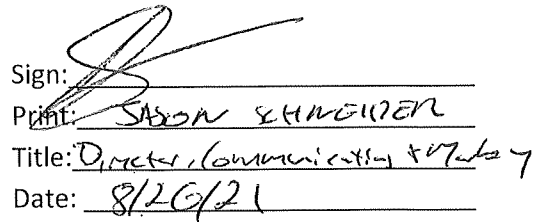 Sign:
Print: JASON SCHNEIDER
Title: Director, Communications +
Date: 8/26/21